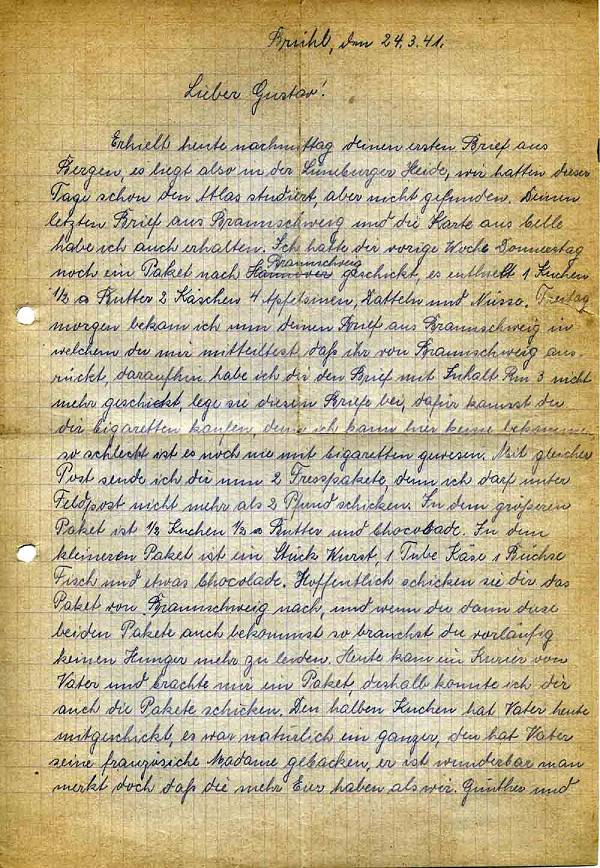 Brühl, den 24.3.41.
Lieber Gustav!
Erhielt heute nachmittag deinen ersten Brief aus
Bergen, es liegt also in der Lüneburger Heide, wir hatten dieser
Tage schon den Atlas studiert, aber nicht gefunden. Deinen
letzten Brief aus Braunschweig und die Karte aus Celle
habe ich auch erhalten. Ich hatte dir vorige Woche Donnerstag
noch ein Paket nach Hannover Braunschweig geschickt, es enthielt 1 Kuchen
1/2 Butter 2 Käschen 4 Apfelsinen, Datteln und Nüsse. Freitag
morgen bekam ich nun deinen Brief aus Braunschweig in
welchem du mir mitteiltest, daß ihr von Braunschweig aus-
rückt, daraufhin habe ich dir den Brief mit Inhalt Rm 3 nicht
mehr geschickt, lege sie diesem Briefe bei, dafür kannst du
dir Cigaretten kaufen, denn ich kann hier keine bekommen,
so schlecht ist es noch nie mit Cigaretten gewesen. Mit gleicher
Post sende ich dir nun 2 Fresspakete, denn ich darf unter
Feldpost nicht mehr als 2 Pfund schicken. In dem größeren
Paket ist 1/2 Kuchen 1/2 Butter und Chocolade. In dem
kleineren Paket ist ein Stück Wurst, 1 Tube Käse 1 Büchse
Fisch und etwas Chocolade. Hoffentlich schicken sie dir das
Paket von Braunschweig nach, und wenn du dann diese
beiden Pakete auch bekommst so brauchst du vorläufig
keinen Hunger mehr zu leiden. Heute kam ein Kurier von
Vater und brachte mir ein Paket, deshalb konnte ich dir
auch die Pakete schicken. Den halben Kuchen hat Vater heute
mitgeschickt, es war natürlich ein ganzer, den hat Vater
seine französiche Madame gebacken, er ist wunderbar man
merkt doch daß die mehr Eier haben als wir. Günther und